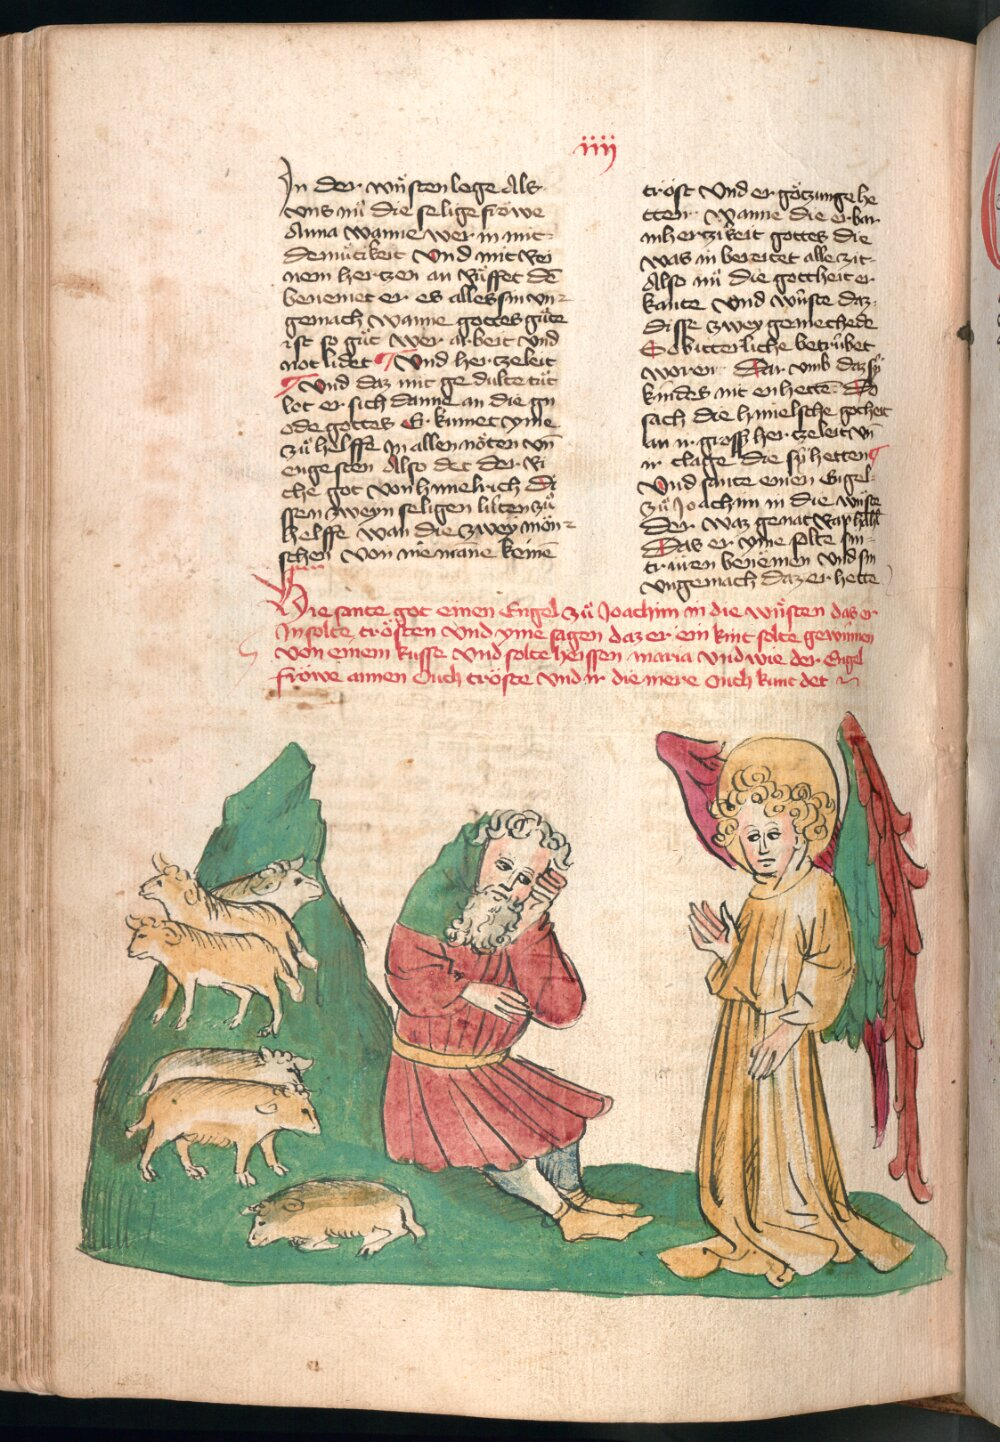 iiij
In der wu̍sten lege Als
vns nu̍ die selige frowe
Anna wanne wer in mit
demu̍tikeit Vnd mit rei
nem hertzen an ru̍ffet dē
benemet er es alles sin vn
gemach wanne gottes gu̍te
ist so gu̍t wer arbeit vnd
not lidet Vnd hertzeleit
Vnd daz mit gedulte tu̍t
lot er sich danne an die gn
ode gottes Er kumet yme
zu̍ helffe In allen nöten vn̄
engesten Also det der ri
che got von himelrich Di
ssen zweyn seligen lu̍ten zu̍
helffe wan die zwey mön
schen von nie manne keinē
tröst Vnd er götzunge he
tten Wanne die erbar
mhertzikeit gottes die
was in bereitet alle zit
Also nu̍ die gottheit er
kante Vnd wu̍ste daz
disse zwey gemechede
So bitterliche betru̍bet
woren Dar vmb daz sy̍
kindes nit enhettē Do
sach die himelsche gotheit
an ir grossz hertzeleit vn̄
ir clage die sy̍ hetten
Vnd sante einen Engel
zu̍ Joachim in die wu̍ste
der waz genāt Raphahel
Das er yme solte sin
truren benēmen Vnd sin
vngemach daz er hette
Hie sante got einen Engel zu̍ Joachim in die wu̍sten das er
In solte trösten Vnd yme sagen daz er ein kint solte gewinnen
von einem kusse Vnd solte heissen maria Vnd wie der Engel
frowe annen Ouch tröste Vnd ir die mere Ouch kunt det